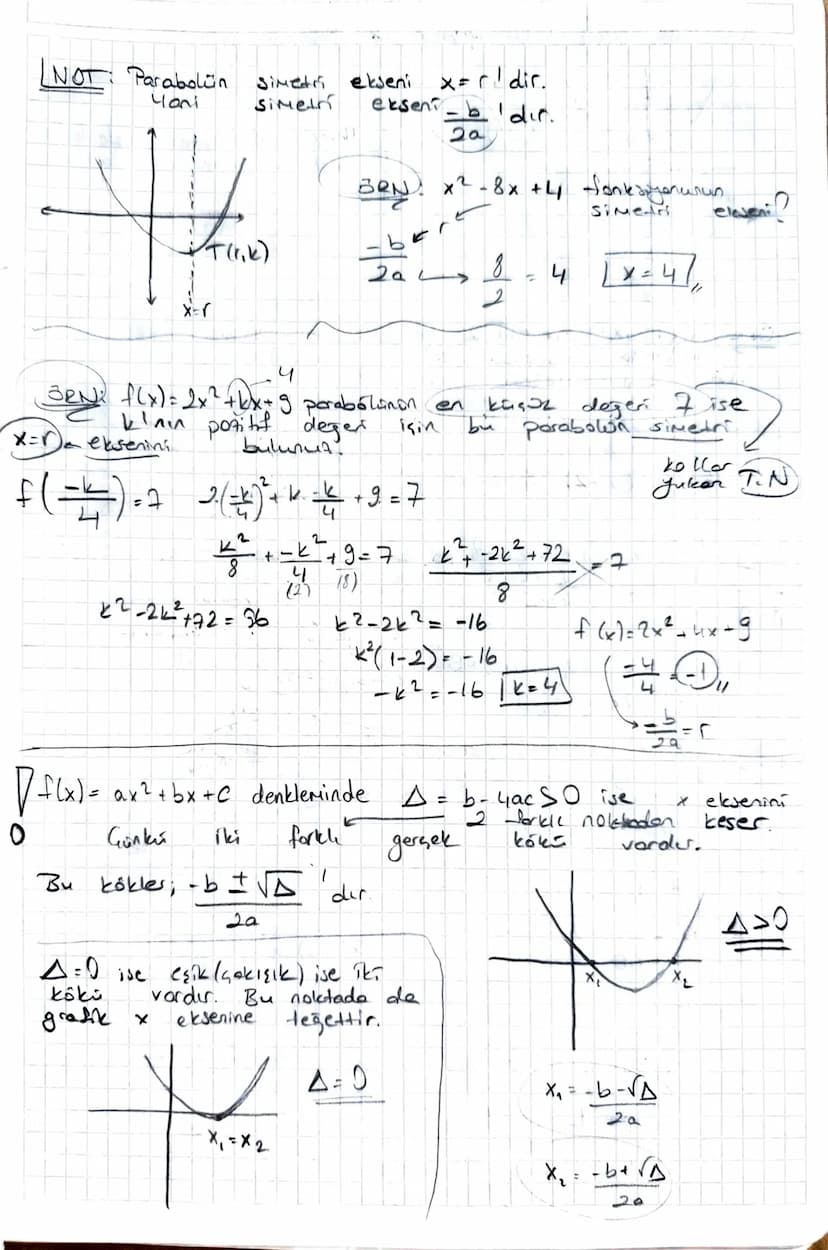 NOT: Parabolün simetri ekseni x=r'dir.
Yani simetri ekseni -b/2a 'dır.
T(r,k)
x=r
ÖRN: x² - 8x + 4 fonksiyonunun
simetri ekseni?
-b/2a ← r
→ 8/2 = 4 x = 4
4
ÖRN: f(x) = 2x² + kx + 9 parabolünün en küçük değeri 7 ise
k'nın pozitif değeri için bu parabolün simetri
x=r ← eksenini bulunuz.
kollar
yukarı T.N
f(-k/4) = 7 2.(-k/4)² + k . -k/4 + 9 = 7
k²/8 + -k²/4 + 9 = 7 k² + -2k² + 72 / 8 = 7
(2) (8)
k² - 2k² + 72 = 56 k² - 2k² = -16
k²(1-2) = -16
-k² = -16 k = 4
f(x) = 2x² + 4x + 9
-4/4 = -1
-b/2a = r
! f(x) = ax² + bx + c denkleminde Δ = b - 4ac > 0 ise x eksenini
2 farklı noktadan keser.
Çünkü iki farklı gerçek kökü vardır.
Bu kökler; -b ± √Δ / 2a 'dır
Δ > 0
x₁ x₂
x₁ = -b - √Δ / 2a
x₂ = -b + √Δ / 2a
Δ = 0 ise eşik (çakışık) ise iki
kökü vardır. Bu noktada da
grafik x eksenine teğettir.
Δ = 0
x₁ = x₂